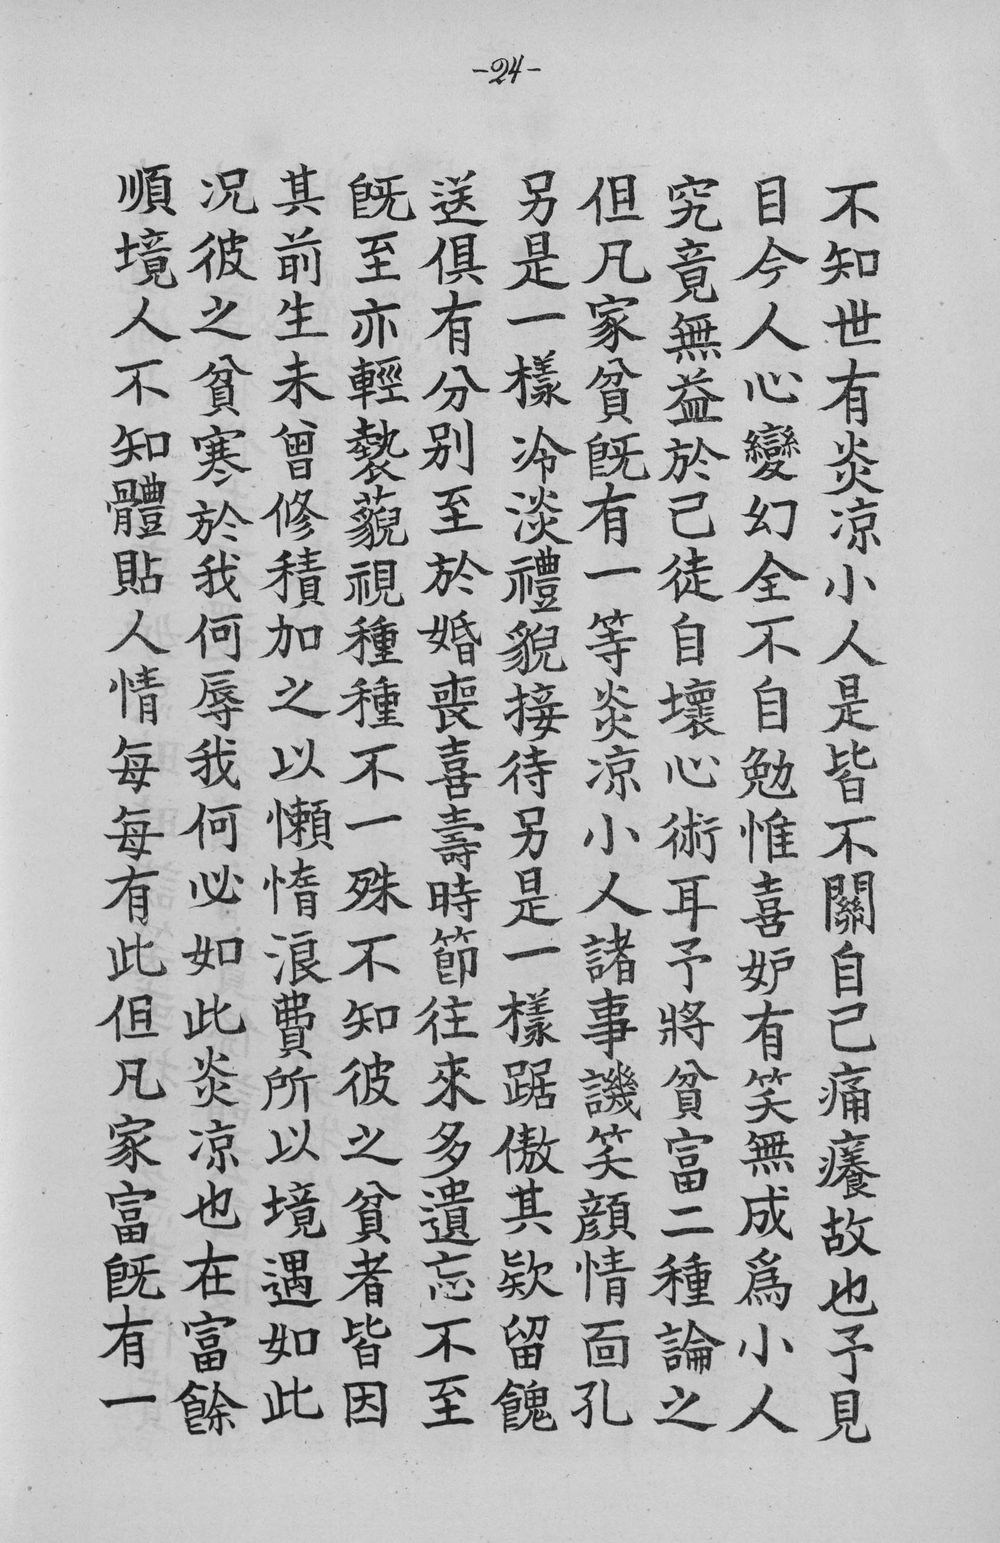 -24-
不知世有炎凉小人是皆不關自己痛癢故也予見
目今人心變幻全不自勉惟喜妒有笑無成爲小人
究竟無益於己徒自壞心術耳予將貧富二種論之
但凡家貧旣有一等炎凉小人諸事譏笑顔情面孔
另是一樣冷淡禮貌接待另是一樣踞傲其欵留餽
送俱有分别至於婚喪喜壽時節往來多遺忘不至
旣至亦輕褻藐視種種不一殊不知彼之貧者皆因
其前生未曾修積加之以懶惰浪費所以境遇如此
况彼之貧寒於我何辱我何必如此炎凉也在富餘
順境人不知體貼人情每每有此但凡家富旣有一